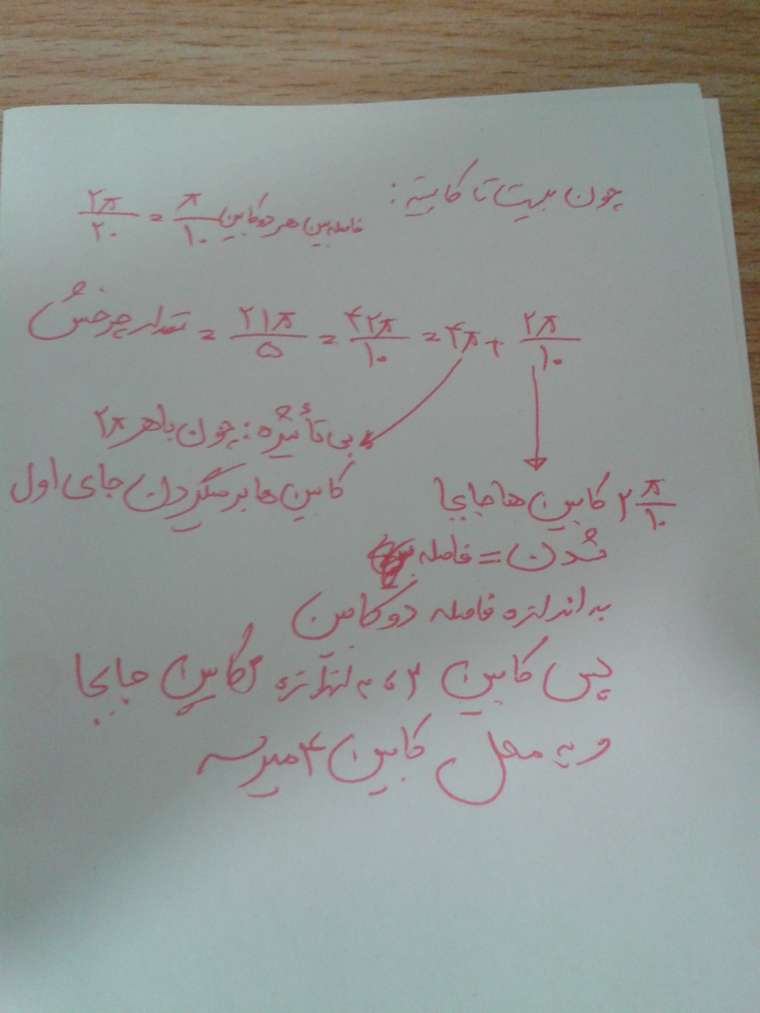 چون بیست تا کابینه:
فاصله بین هر دو کابین ۲π/۲۰ = π/۱۰
تعداد چرخش = ۲۱π/۵ = ۴۲π/۱۰ = ۴π + ۲π/۱۰
بی تأثیره: چون با هر ۲π
کابین ها برمیگردن جای اول
۲ π/۱۰ کابین ها جابجا
شدن = فاصله
به اندازه فاصله دو کابین
پس کابین به اندازه کابین جابجا
و به محل کابین ۴ میرسه